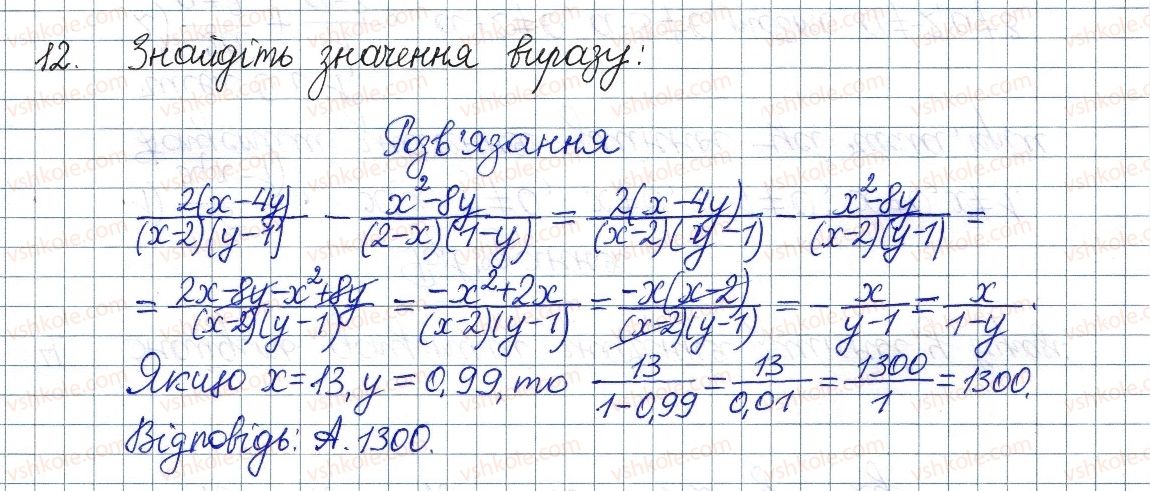 12. Знайдіть значення виразу:
Розв'язання
2(x-4y)/(x-2)(y-1) - x²-8y/(2-x)(1-y) = 2(x-4y)/(x-2)(y-1) - x²-8y/(x-2)(y-1) =
= 2x-8y-x²+8y/(x-2)(y-1) = -x²+2x/(x-2)(y-1) = -x(x-2)/(x-2)(y-1) = - x/y-1 = x/1-y.
Якщо x=13, y=0,99, то 13/1-0,99 = 13/0,01 = 1300/1 = 1300.
Відповідь: А. 1300.